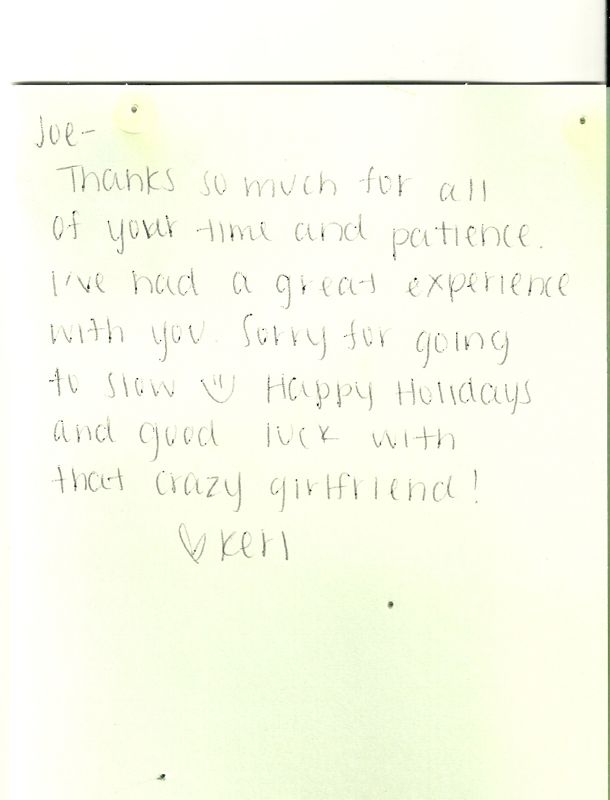 Joe-
Thanks so much for all
of your time and patience.
I've had a great experience
with you. Sorry for going
to slow ツ Happy Holidays
and good luck with
that crazy girlfriend!
♡ Keri